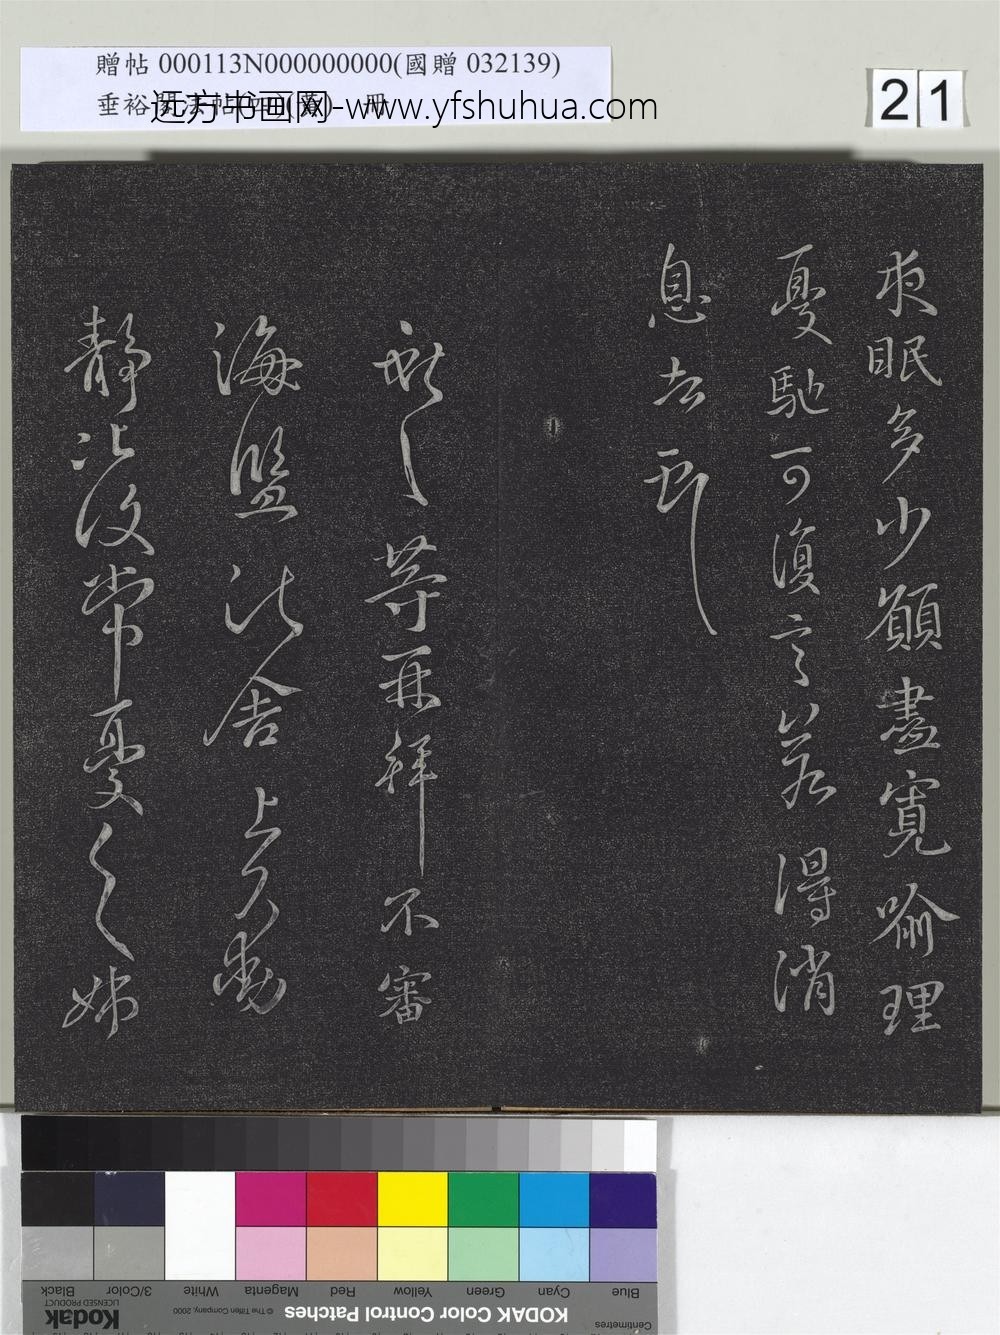 贈帖 000113N000000000(國贈 032139)
垂裕閣法帖
远方书画网-www.yfshuhua.com
21
夜眠多少願盡寬喻理
憂馳可復言若得消
息去
獻之等再拜不審
海鹽諸舍上下動
靜比復常憂之姊
Blue Cyan Green Yellow Red Magenta White 3/Color Black
KODAK Color Control Patches
© The Tiffen Company, 2000
Kodak
LICENSED PRODUCT
Centimetres